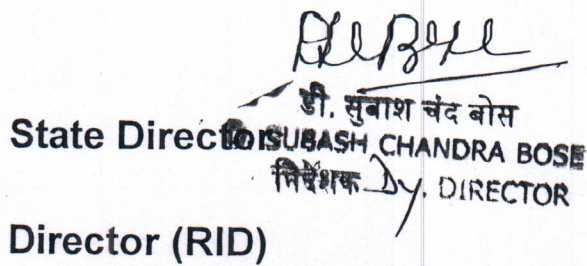 डी. सुबाश चंद बोस
State Director
D. SUBASH CHANDRA BOSE
निदेशक Dy. DIRECTOR
Director (RID)